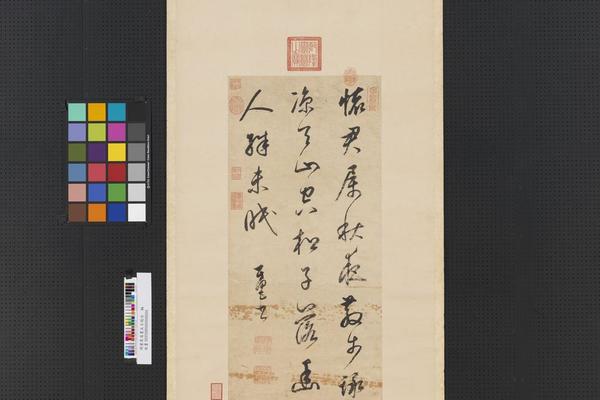 懷君屬秋夜散步詠
涼天山空松子落幽
人殊未眠
其昌書